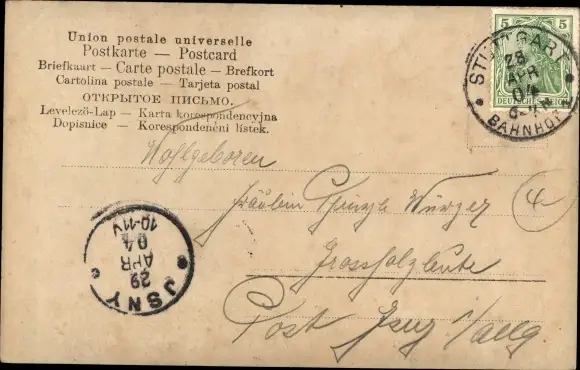 Union postale universelle
Postkarte — Postcard
Briefkaart — Carte postale — Brefkort
Cartolina postale — Tarjeta postal
ОТКРЫТОЕ ПИСЬМО.
Levelező-Lap — Karta korespondencyjna
Dopisnice — Korespondenční lístek.
5 5
DEUTSCHES
STUTTGART
28
APR
04
BAHNHOF
Wohlgeboren
Fräulein Würzer
4
Grossholzleute
Post Isny i/allg.
JSNY
29
APR
04
10-11V